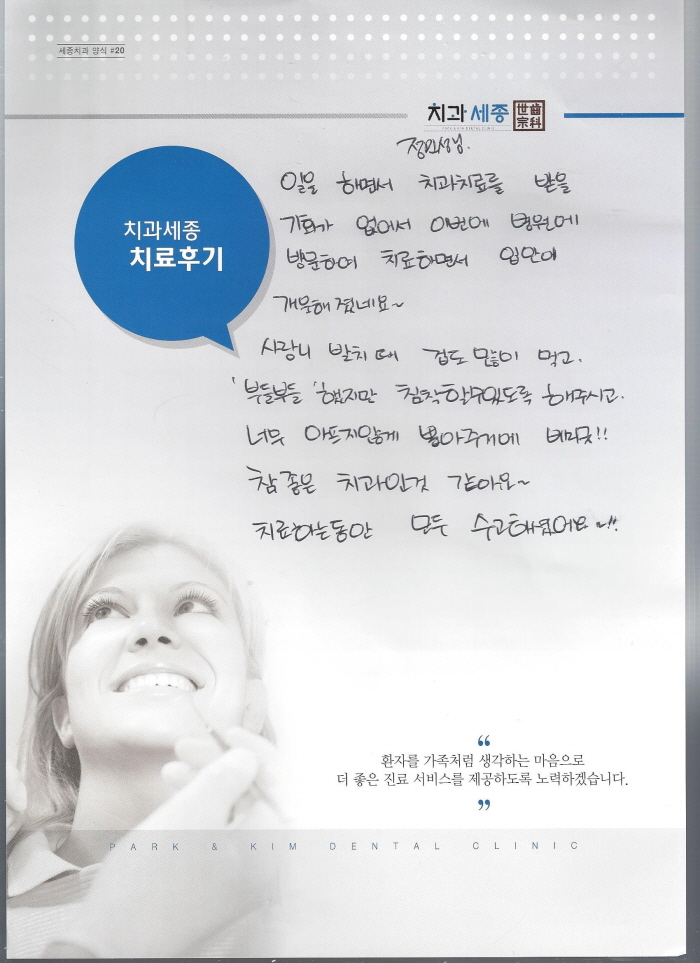 세종치과 양식 #20
치과세종
世齒
宗科
PARK & KIM DENTAL CLINIC
치과세종
치료후기
일을 하면서 치과치료를 받을
기회가 없어서 이번에 병원에
방문하여 치료하면서 입안이
개운해졌네요~
사랑니 발치때 겁도 많이 먹고.
'부들부들' 했지만 침착할수있도록 해주시고.
너무 아프지않게 뽑아주게에 베리굿!!
참 좋은 치과인것 같아요~
치료하는동안 모두 수고하셨어요~!!
“
환자를 가족처럼 생각하는 마음으로
더 좋은 진료 서비스를 제공하도록 노력하겠습니다.
”
PARK & KIM DENTAL CLINIC